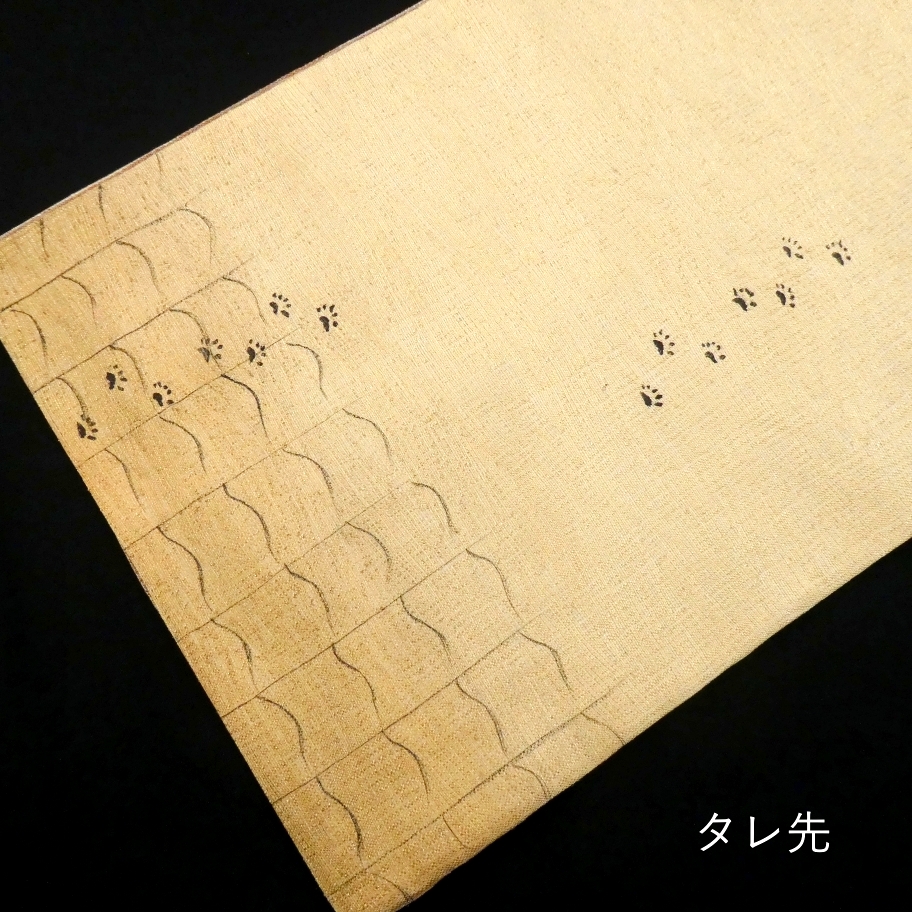 タレ先